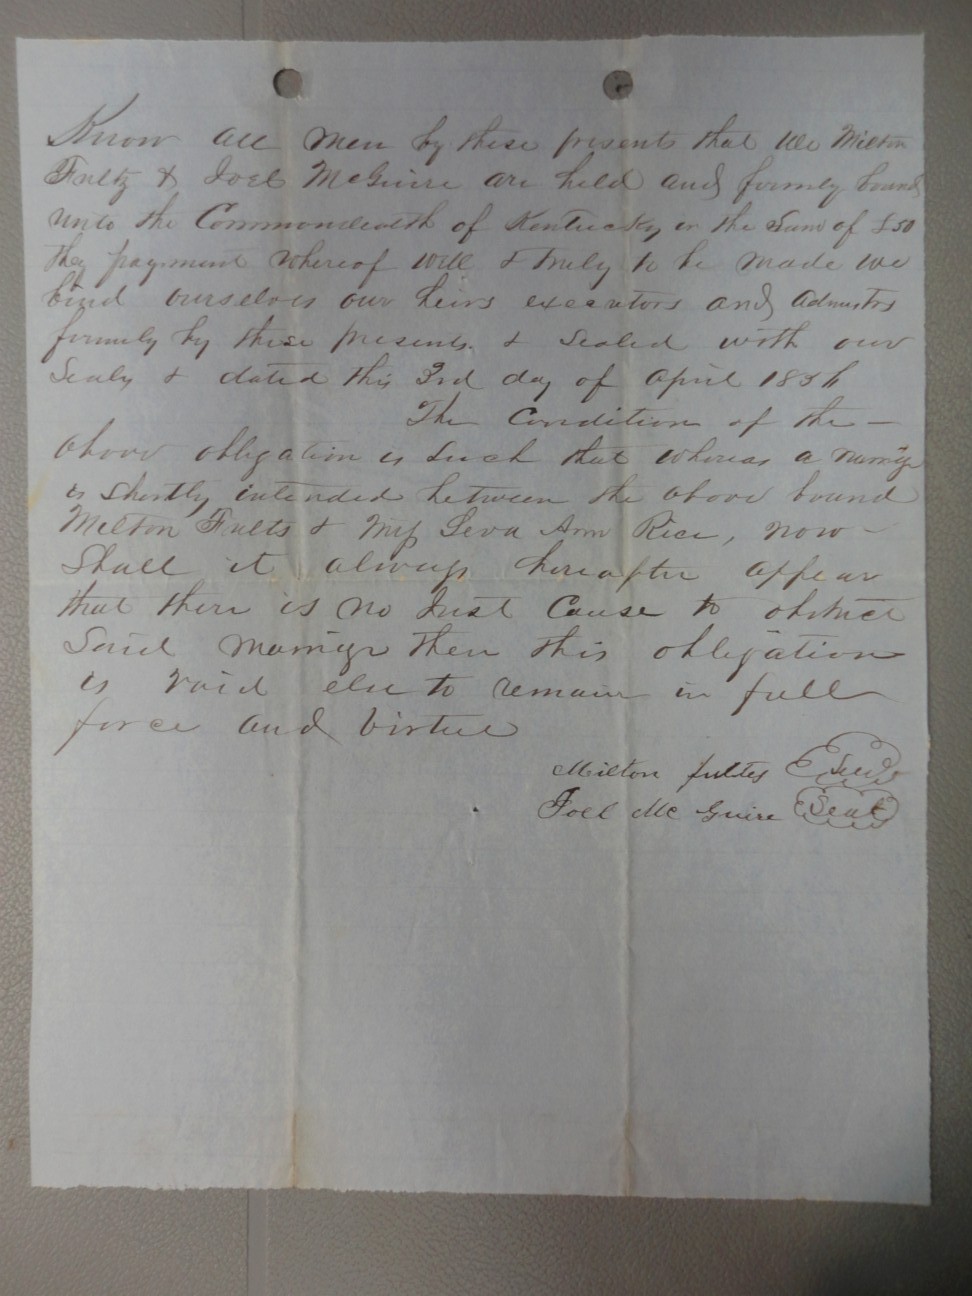 Know all men by these presents that We Milton
Fultz & Joel McGuire are held and firmly bound
unto the Commonwealth of Kentucky in the Sum of £50
they payment whereof will & truly to be made we
bind ourselves our heirs executors and Admnstrs
firmly by these presents & Sealed with our
Seals & dated this 3rd day of April
The Condition of the —
above obligation is Such that whereas a marrige
is Shortly intended between the above bound
Milton Fults & Miss Leva Ann Rice, now —
Shall it always hereafter appear
that there is no Just Cause to obstruct
Said marrige then this obligation
is void else to remain in full
force and virtue
Milton fultes Seal
Joel Mc Guire Seal